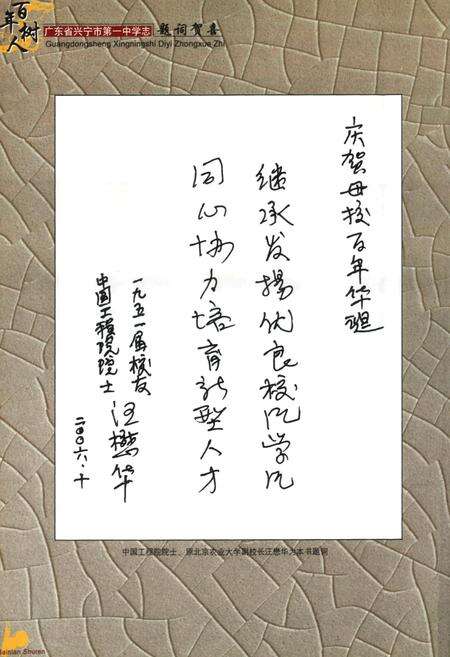 百年树人
广东省兴宁市第一中学志 题词贺喜
Guangdongsheng Xingningshi Diyi Zhongxue Zhi
庆贺母校百年华诞
继承发扬优良校风学风
同心协力培育新型人才
一九五一届校友
中国工程院院士 汪懋华
二〇〇六.十
中国工程院院士、原北京农业大学副校长汪懋华为本书题词
Bainian Shuren